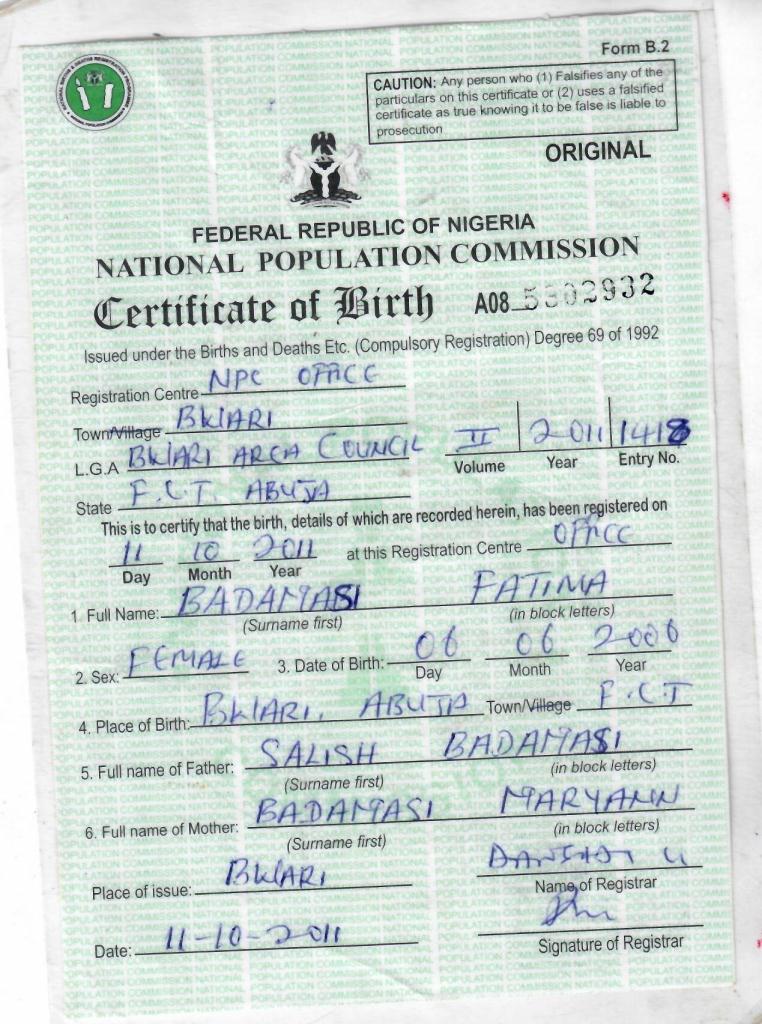 Form B.2
CAUTION: Any person who (1) Falsifies any of the
particulars on this certificate or (2) uses a falsified
certificate as true knowing it to be false is liable to
prosecution
ORIGINAL
FEDERAL REPUBLIC OF NIGERIA
NATIONAL POPULATION COMMISSION
Certificate of Birth A08 5302932
Issued under the Births and Deaths Etc. (Compulsory Registration) Degree 69 of 1992
Registration Centre NPC OFFICE
Town/Village BWARI
L.G.A BWARI AREA COUNCIL II 2011 1418
Volume Year Entry No.
State F.C.T. ABUJA
This is to certify that the birth, details of which are recorded herein, has been registered on
11 10 2011 at this Registration Centre OFFICE
Day Month Year
1. Full Name: BADAMASI FATIMA
(Surname first) (in block letters)
2. Sex: FEMALE 3. Date of Birth: 06 06 2006
Day Month Year
4. Place of Birth: BWARI, ABUJA Town/Village F.C.T
5. Full name of Father: SALISH BADAMASI
(Surname first) (in block letters)
6. Full name of Mother: BADAMASI MARYANN
(Surname first) (in block letters)
Place of issue: BWARI
Name of Registrar
Date: 11-10-2011
Signature of Registrar